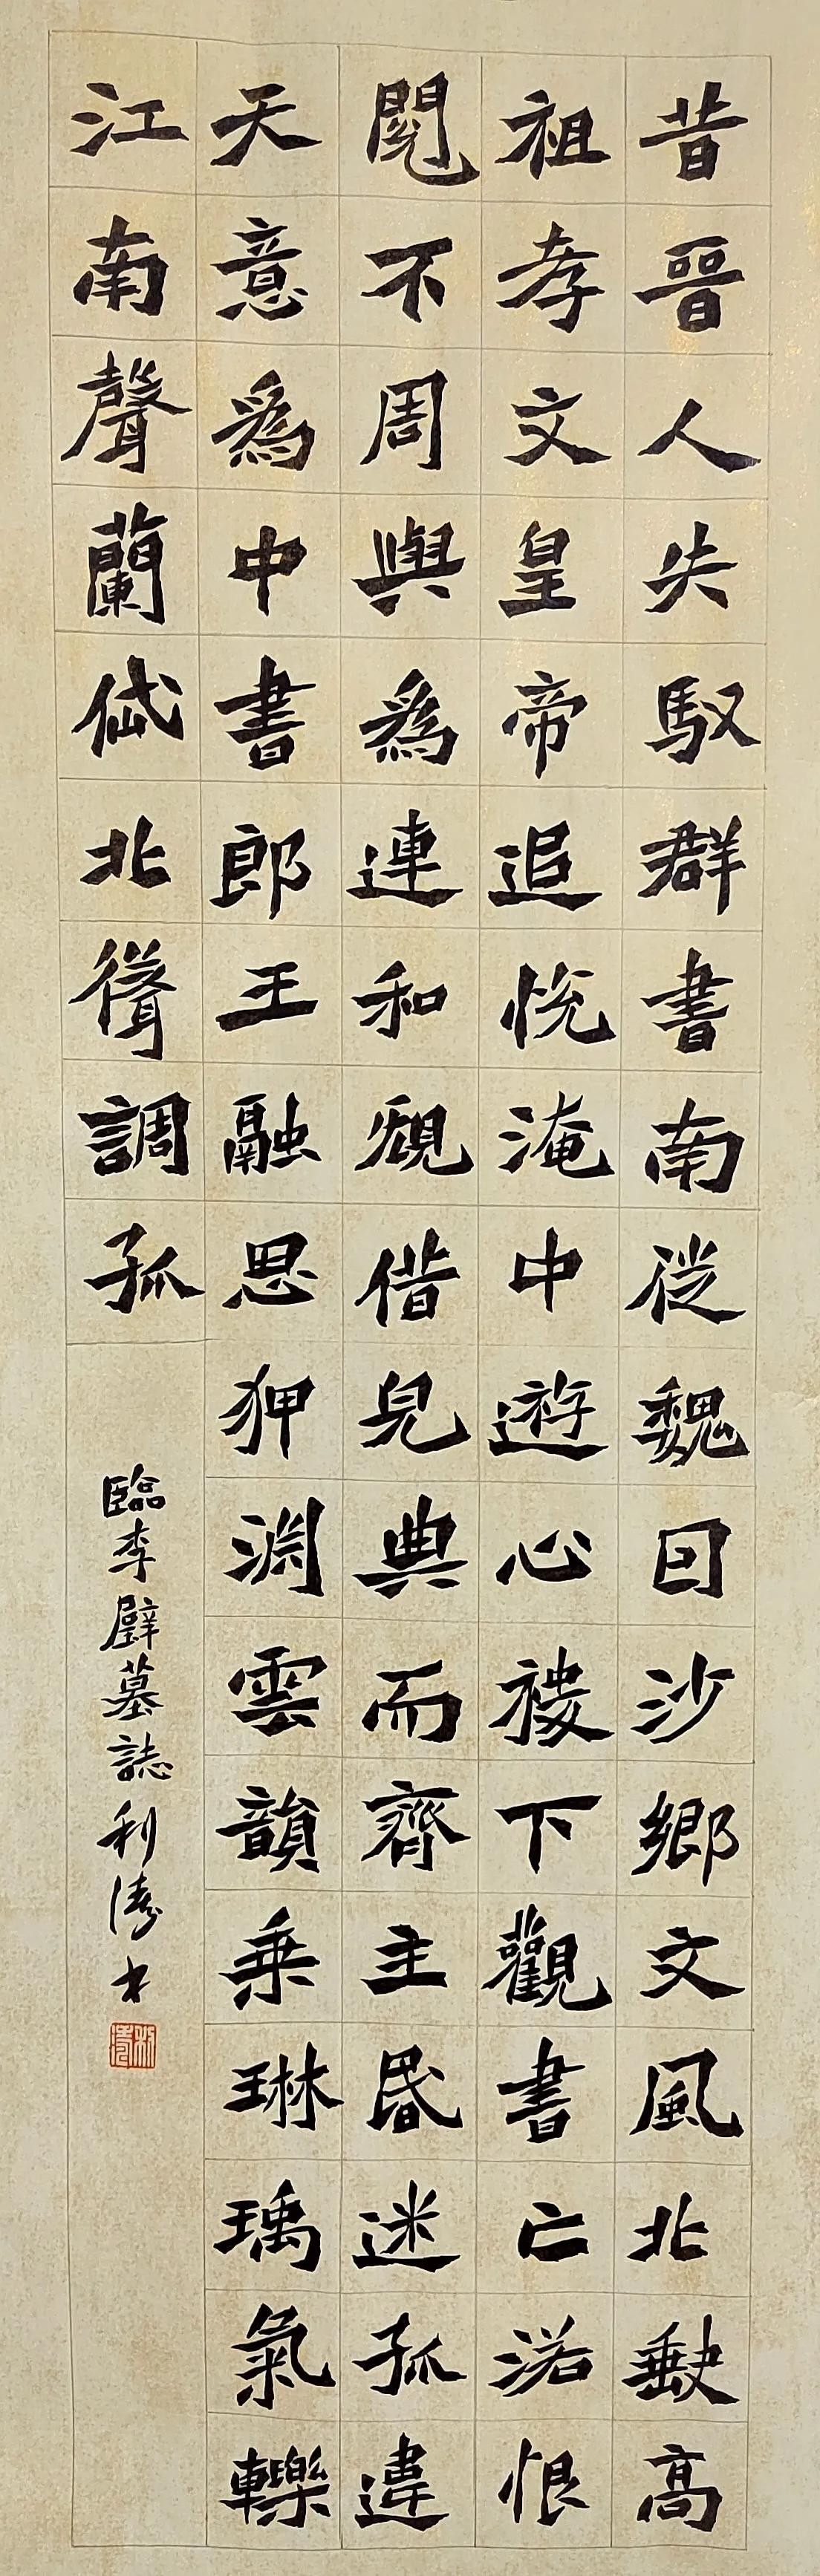 昔晉人失馭群書南從魏因沙鄉文風北缺高
祖孝文皇帝追悅淹中遊心稷下觀書亡落恨
閱不周與為連和規借完典而齊主昏迷孤違
天意為中書郎王融思狎淵雲韻乘琳瑀氣轢
江南聲蘭岱北聳調孤
臨李璧墓誌利濤书